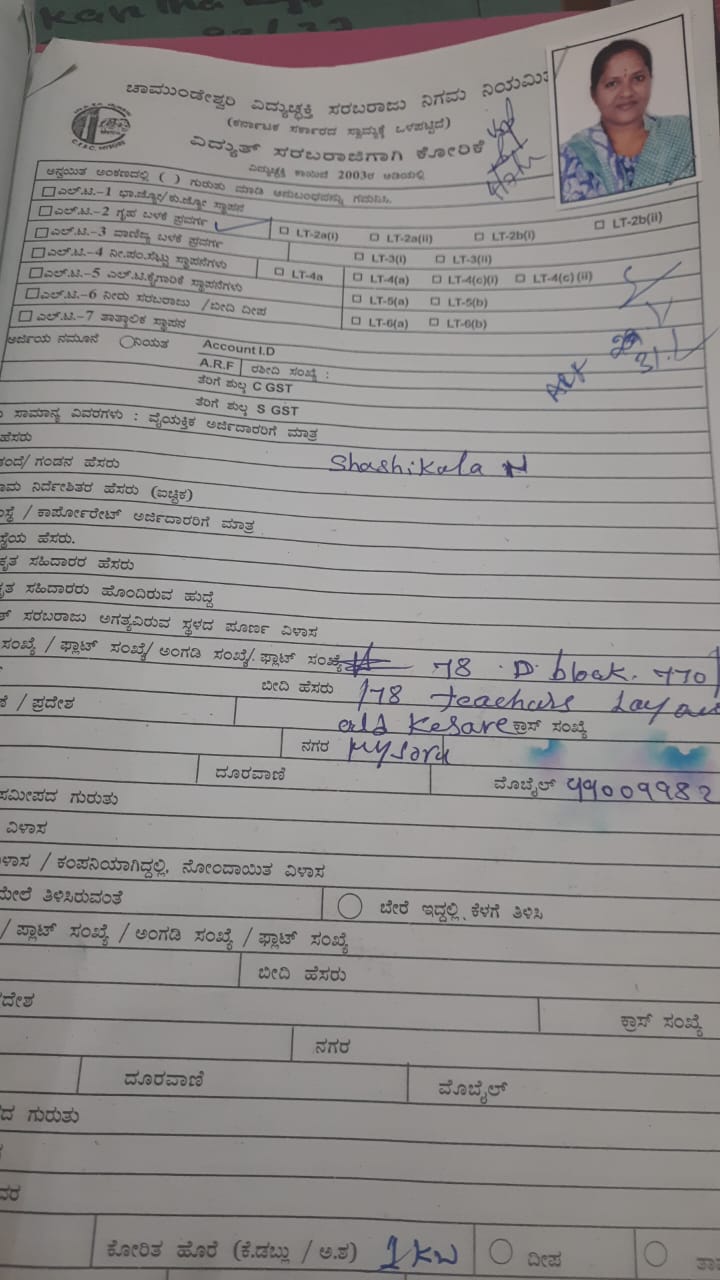 ಚಾಮುಂಡೇಶ್ವರಿ ವಿದ್ಯುಚ್ಛಕ್ತಿ ಸರಬರಾಜು ನಿಗಮ ನಿಯಮಿ
(ಕರ್ನಾಟಕ ಸರ್ಕಾರದ ಸ್ವಾಮ್ಯಕ್ಕೆ ಒಳಪಟ್ಟಿದೆ)
ವಿದ್ಯುತ್ ಸರಬರಾಜಿಗಾಗಿ ಕೋರಿಕೆ
ವಿದ್ಯುಚ್ಛಕ್ತಿ ಕಾಯಿದೆ 2003ರ ಅಡಿಯಲ್ಲಿ
ಅನ್ವಯಿತ ಅಂಕಣದಲ್ಲಿ ( ) ಗುರುತು ಮಾಡಿ ಅನುಬಂಧವನ್ನು ಗಮನಿಸಿ.
ಎಲ್.ಟಿ.-1 ಭಾ.ಜ್ಯೋ/ಕು.ಜ್ಯೋ ಸ್ಥಾಪನ
ಎಲ್.ಟಿ.-2 ಗೃಹ ಬಳಕೆ ಪ್ರವರ್ಗ LT-2a(i) LT-2a(ii) LT-2b(i) LT-2b(ii)
ಎಲ್.ಟಿ.-3 ವಾಣಿಜ್ಯ ಬಳಕೆ ಪ್ರವರ್ಗ LT-3(i) LT-3(ii)
ಎಲ್.ಟಿ.-4 ನೀ.ಪಂ.ಸೆಟ್ಟು ಸ್ಥಾಪನೆಗಳು LT-4a LT-4(a) LT-4(c)(i) LT-4(c) (ii)
ಎಲ್.ಟಿ.-5 ಎಲ್.ಟಿ.ಕೈಗಾರಿಕೆ ಸ್ಥಾಪನೆಗಳು LT-5(a) LT-5(b)
ಎಲ್.ಟಿ.-6 ನೀರು ಸರಬರಾಜು /ಬೀದಿ ದೀಪ LT-6(a) LT-6(b)
ಎಲ್.ಟಿ.-7 ತಾತ್ಕಾಲಿಕ ಸ್ಥಾಪನ
ಅರ್ಜಿಯ ನಮೂನೆ ನಿಯತ Account I.D
A.R.F ರಶೀದಿ ಸಂಖ್ಯೆ :
ತೆರಿಗೆ ಶುಲ್ಕ C GST
ತೆರಿಗೆ ಶುಲ್ಕ S GST
ಸಾಮಾನ್ಯ ವಿವರಗಳು : ವೈಯಕ್ತಿಕ ಅರ್ಜಿದಾರರಿಗೆ ಮಾತ್ರ
ಹೆಸರು
ಗಂಡನ ಹೆಸರು Shashikala N
ನಿರ್ದೇಶಿತರ ಹೆಸರು (ಐಚ್ಛಿಕ)
/ ಕಾರ್ಪೋರೇಟ್ ಅರ್ಜಿದಾರರಿಗೆ ಮಾತ್ರ
ಹೆಸರು.
ಸಹಿದಾರರ ಹೆಸರು
ಸಹಿದಾರರು ಹೊಂದಿರುವ ಹುದ್ದೆ
ಸರಬರಾಜು ಅಗತ್ಯವಿರುವ ಸ್ಥಳದ ಪೂರ್ಣ ವಿಳಾಸ
ಸಂಖ್ಯೆ / ಫ್ಲಾಟ್ ಸಂಖ್ಯೆ/ ಅಂಗಡಿ ಸಂಖ್ಯೆ/ ಫ್ಲಾಟ್ ಸಂಖ್ಯೆ 78 D block. 770
ಬೀದಿ ಹೆಸರು 178 teachers Layou
/ ಪ್ರದೇಶ old Kesare ಕ್ರಾಸ್ ಸಂಖ್ಯೆ
ನಗರ Mysoru
ದೂರವಾಣಿ ಮೊಬೈಲ್ 99009982
ಸಮೀಪದ ಗುರುತು
ವಿಳಾಸ
/ ಕಂಪನಿಯಾಗಿದ್ದಲ್ಲಿ, ನೋಂದಾಯಿತ ವಿಳಾಸ
ಮೇಲೆ ತಿಳಿಸಿರುವಂತೆ ಬೇರೆ ಇದ್ದಲ್ಲಿ ಕೆಳಗೆ ತಿಳಿಸಿ
/ ಪ್ಲಾಟ್ ಸಂಖ್ಯೆ / ಅಂಗಡಿ ಸಂಖ್ಯೆ / ಫ್ಲಾಟ್ ಸಂಖ್ಯೆ
ಬೀದಿ ಹೆಸರು
ಕ್ರಾಸ್ ಸಂಖ್ಯೆ
ನಗರ
ದೂರವಾಣಿ ಮೊಬೈಲ್
ಗುರುತು
ಕೋರಿತ ಹೊರೆ (ಕೆ.ಡಬ್ಲು / ಅ.ಶ) 1 KW ದೀಪ